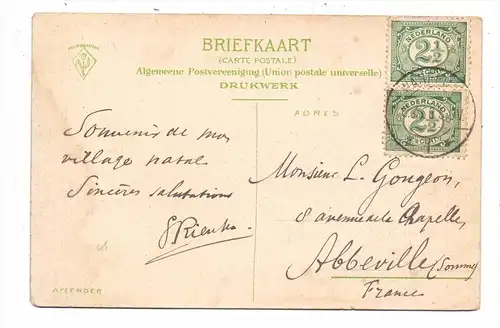 BRIEFKAART
(CARTE POSTALE)
Algemeene Postvereeniging (Union postale universelle)
DRUKWERK
NEDERLAND
2½
CENT
NEDERLAND
2½
CENT
ADRES
Souvenir de mon
village natal
Sincères salutations
Monsieur L. Gougeon,
8 avenue de la Chapelle,
Abbeville (Somme)
France
AFZENDER